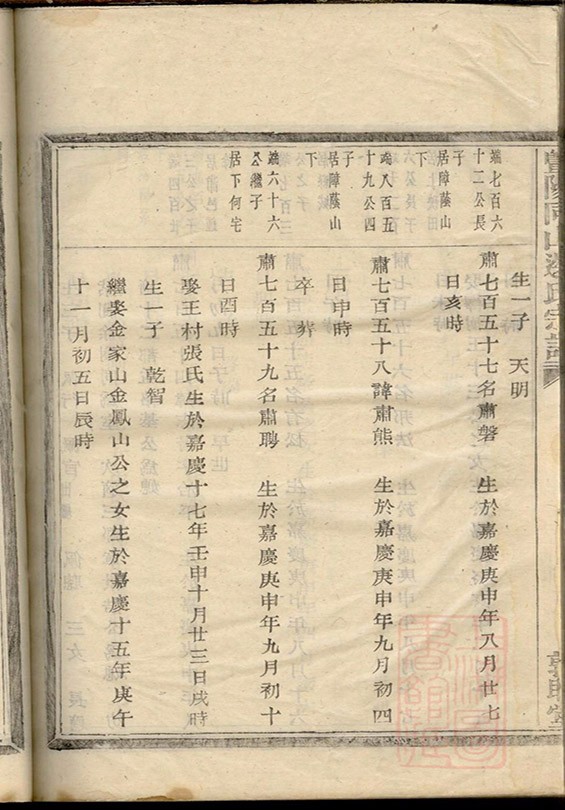 生一子　天明
端七百六
十二公長
子
居障蔭山
下
肅七百五十七名肅磐　生於嘉慶庚申年八月廿七
日亥時
端八百五
十九公四
子
居障蔭山
下
肅七百五十八諱肅熊　生於嘉慶庚申年九月初四
日申時
卒　葬
端六十六
公繼子
居下何宅
肅七百五十九名肅聘　生於嘉慶庚申年九月初十
日酉時
娶王村張氏生於嘉慶十七年壬申十月廿三日戌時
生一子　乾智
繼娶金家山金鳳山公之女生於嘉慶十五年庚午
十一月初五日辰時